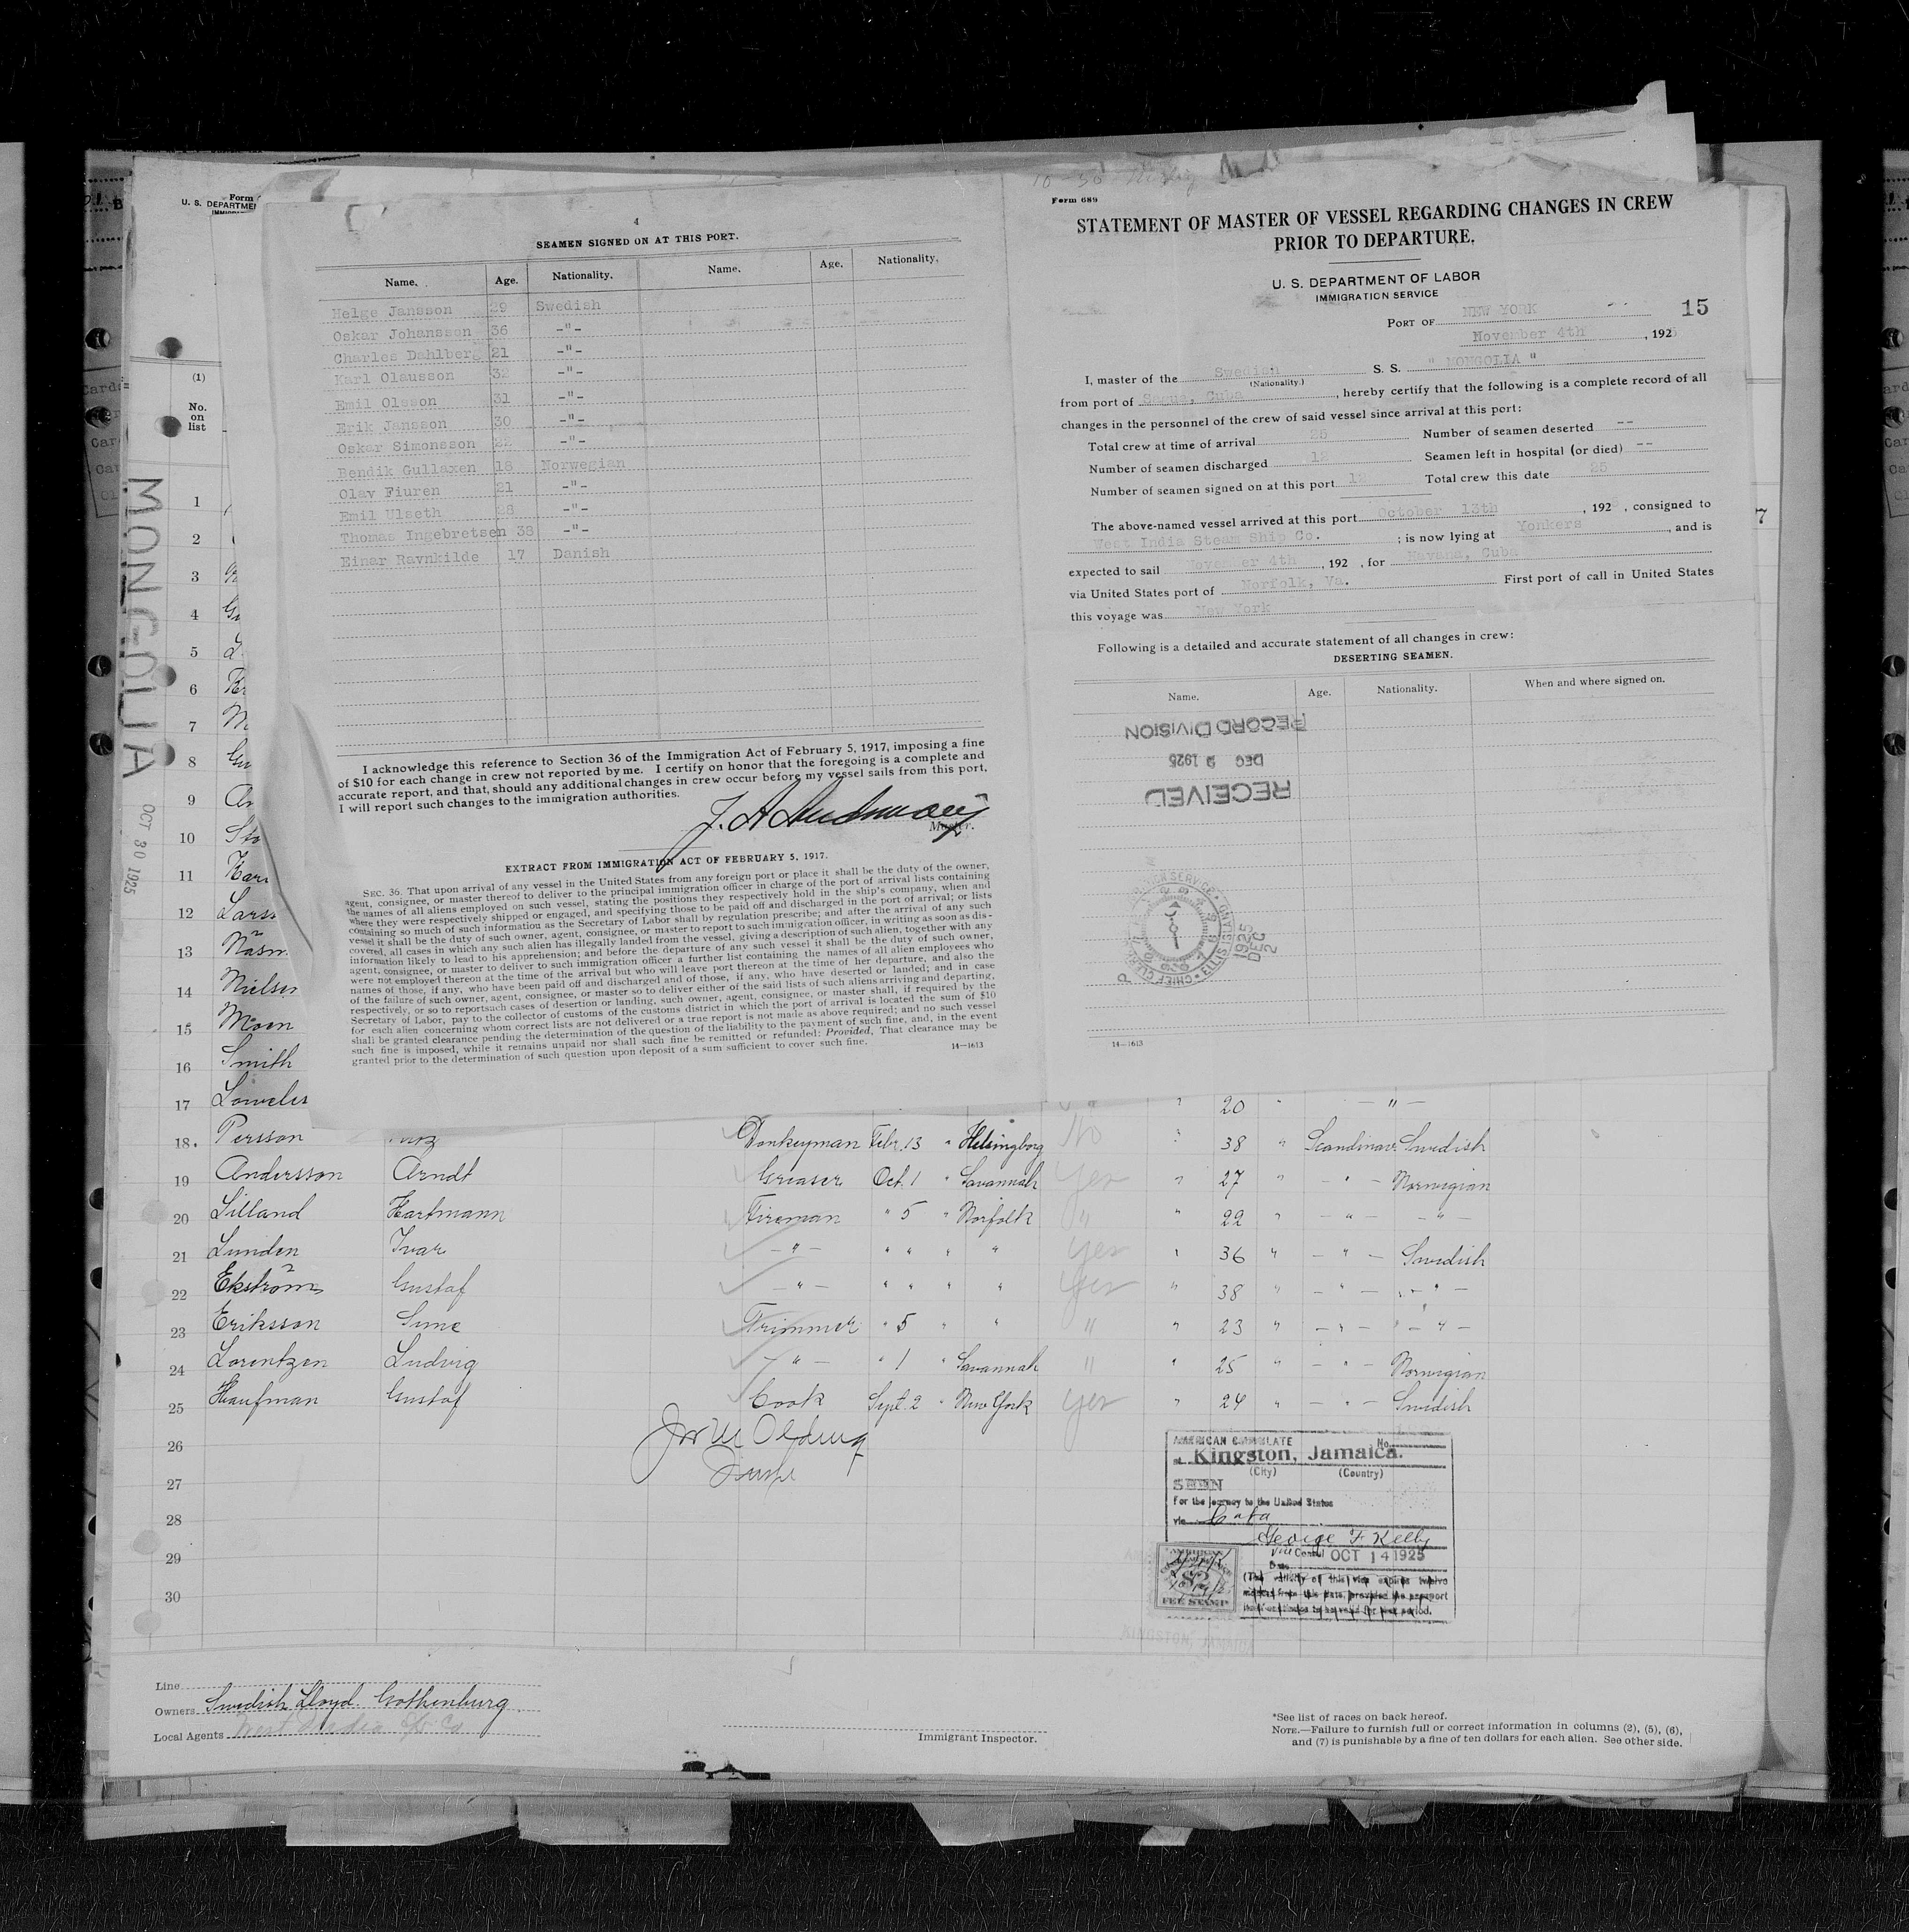 4
SEAMEN SIGNED ON AT THIS PORT.
Name. Age. Nationality. Name. Age. Nationality.
Helge Jansson 29 Swedish
Oskar Johansson 36 -"-
Charles Dahlberg 21 -"-
Karl Olausson 32 -"-
Emil Olsson 31 -"-
Erik Jansson 30 -"-
Oskar Simonsson 22 -"-
Bendik Gullaxen 18 Norwegian
Olav Fiuren 21 -"-
Emil Ulseth 28 -"-
Thomas Ingebretsen 38 -"-
Einar Ravnkilde 17 Danish
I acknowledge this reference to Section 36 of the Immigration Act of February 5, 1917, imposing a fine
of $10 for each change in crew not reported by me. I certify on honor that the foregoing is a complete and
accurate report, and that, should any additional changes in crew occur before my vessel sails from this port,
I will report such changes to the immigration authorities.
Master.
EXTRACT FROM IMMIGRATION ACT OF FEBRUARY 5, 1917.
SEC. 36. That upon arrival of any vessel in the United States from any foreign port or place it shall be the duty of the owner,
agent, consignee, or master thereof to deliver to the principal immigration officer in charge of the port of arrival lists containing
the names of all aliens employed on such vessel, stating the positions they respectively hold in the ship's company, when and
where they were respectively shipped or engaged, and specifying those to be paid off and discharged in the port of arrival; or lists
containing so much of such information as the Secretary of Labor shall by regulation prescribe; and after the arrival of any such
vessel it shall be the duty of such owner, agent, consignee, or master to report to such immigration officer, in writing as soon as dis-
covered, all cases in which any such alien has illegally landed from the vessel, giving a description of such alien, together with any
information likely to lead to his apprehension; and before the departure of any such vessel it shall be the duty of such owner,
agent, consignee, or master to deliver to such immigration officer a further list containing the names of all alien employees who
were not employed thereon at the time of the arrival but who will leave port thereon at the time of her departure, and also the
names of those, if any, who have been paid off and discharged and of those, if any, who have deserted or landed; and in case
of the failure of such owner, agent, consignee, or master so to deliver either of the said lists of such aliens arriving and departing,
respectively, or so to report such cases of desertion or landing, such owner, agent, consignee, or master shall, if required by the
Secretary of Labor, pay to the collector of customs of the customs district in which the port of arrival is located the sum of $10
for each alien concerning whom correct lists are not delivered or a true report is not made as above required; and no such vessel
shall be granted clearance pending the determination of the question of the liability to the payment of such fine, and, in the event
such fine is imposed, while it remains unpaid nor shall such fine be remitted or refunded: Provided, That clearance may be
granted prior to the determination of such question upon deposit of a sum sufficient to cover such fine.
14—1613
Form 689
STATEMENT OF MASTER OF VESSEL REGARDING CHANGES IN CREW
PRIOR TO DEPARTURE.
U. S. DEPARTMENT OF LABOR
IMMIGRATION SERVICE
15
PORT OF NEW YORK
November 4th, 192
I, master of the Swedish S. S. " MONGOLIA "
(Nationality.)
from port of Sagua, Cuba, hereby certify that the following is a complete record of all
changes in the personnel of the crew of said vessel since arrival at this port:
Total crew at time of arrival 25 Number of seamen deserted --
Number of seamen discharged 12 Seamen left in hospital (or died) --
Number of seamen signed on at this port 12 Total crew this date 25
The above-named vessel arrived at this port October 13th, 192 , consigned to
West India Steam Ship Co. ; is now lying at Yonkers, and is
expected to sail November 4th, 192 , for Havana, Cuba
via United States port of Norfolk, Va. First port of call in United States
this voyage was New York
Following is a detailed and accurate statement of all changes in crew:
DESERTING SEAMEN.
Name. Age. Nationality. When and where signed on.
RECORD DIVISION
DEC 9 1925
RECEIVED
CHIEF CLERK ELLIS ISLAND
1925
DEC
2
14—1613
Form
U. S. DEPARTMEN
MONGOLIA
OCT 30 1925
(1)
No.
on
list
7
1
2
3
4
5
6
7
8
9
10
11
12
13
14
15
16 Smith
17 20 — " —
18. Persson Donkeyman Febr. 13 " Helsingborg No " 38 " Scandinav. Swedish
19 Andersson Arndt Greaser Oct. 1 " Savannah Yes " 27 " - " - Norwegian
20 Lilland Hartmann Fireman " 5 " Norfolk " " 22 " - " - - " -
21 Lunden Ivar - " - " " " " Yes " 36 " - " - Swedish
22 Ekström Gustaf - " - " " " " Yes " 38 " - " - - " -
23 Eriksson Sune Trimmer " 5 " " " " 23 " - " - - " -
24 Lorentzen Ludvig - " - " 1 " Savannah " " 25 " - " - Norwegian
25 Kaufman Gustaf Cook Sept. 2 " New York Yes " 24 " - " - Swedish
26
27
28
29
30
AMERICAN CONSULATE No.
at Kingston, Jamaica.
(City) (Country)
SEEN
For the journey to the United States
via Cuba
George F Kelly
Vice Consul OCT 14 1925
(The validity of this visa expires twelve
months from this date, provided the passport
itself continues to be valid for that period.
$2
FEE STAMP
KINGSTON, JAMAICA
Line
Owners Swedish Lloyd. Gothenburg.
Local Agents West India SS. Co
Immigrant Inspector.
*See list of races on back hereof.
NOTE.—Failure to furnish full or correct information in columns (2), (5), (6),
and (7) is punishable by a fine of ten dollars for each alien. See other side.